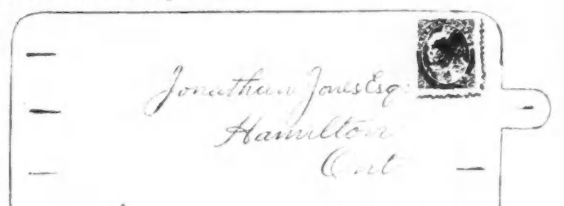 Jonathan Jones Esq.
Hamilton
Ont